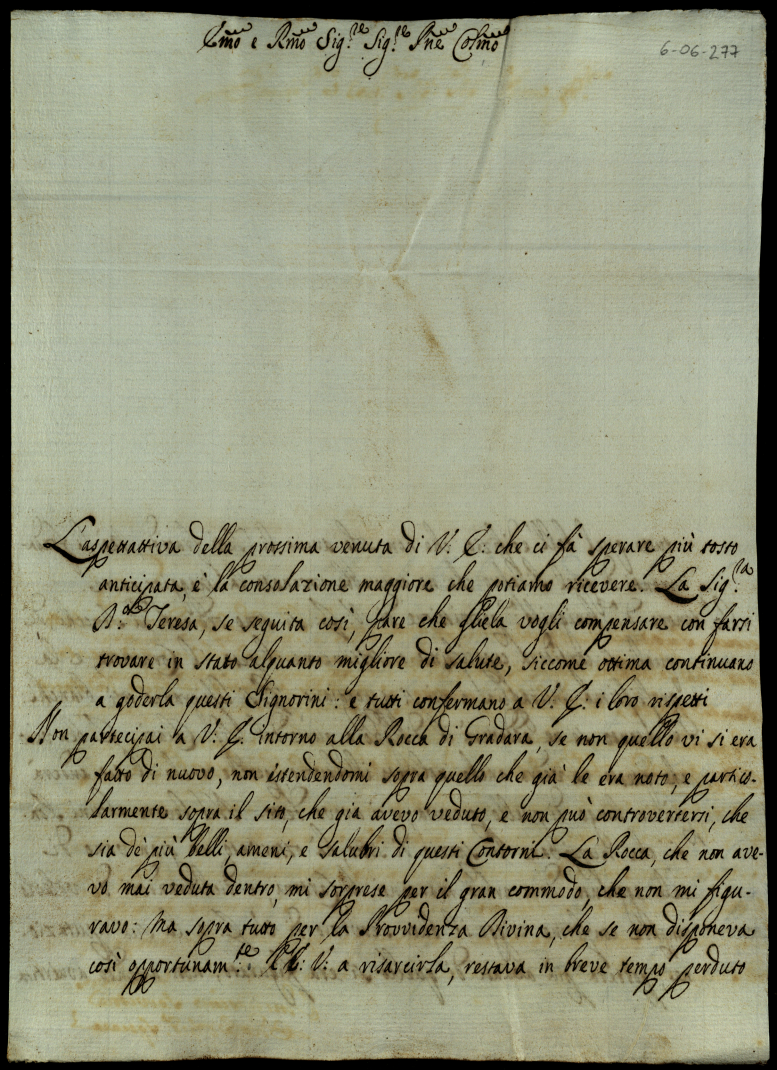 Emo e Rmo Sig.re Sig.re Pne Colmo
6-06-277
L'aspettativa della prossima venuta di V. E. che ci fà sperare più tosto
anticipata, è la consolazione maggiore che potiamo ricevere. La Sig.ra
Teresa, se seguita così, pare che gliela vogli compensare con farsi
trovare in stato alquanto migliore di salute, siccome ottima continuano
a goderla questi Signorini: e tutti confermano a V. E. i loro rispetti
Non partecipai a V. E. intorno alla Rocca di Gradara, se non quello vi si era
fatto di nuovo, non estendendomi sopra quello che già le era noto, e partico-
larmente sopra il sito, che già avevo veduto, e non può controvertersi, che
sia dè più belli, ameni, e salubri di questi Contorni. La Rocca, che non ave-
vo mai veduta dentro, mi sorprese per il gran commodo, che non mi figu-
ravo: Ma sopra tutto per la Provvidenza Divina, che se non disponeva
così opportunam.te V. a risarcirla, restava in breve tempo perduto